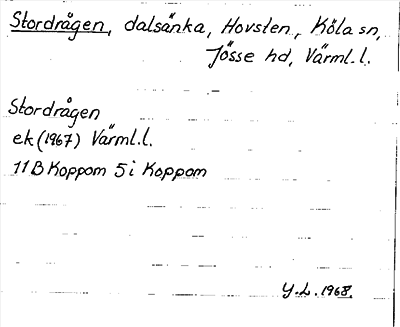 Stordrågen, dalsänka, Hovsten, Köla sn,
Jösse hd, Värml.l.
Stordrågen
ek (1967) Värml.l.
11B Koppom 5i Koppom
Y.L. 1968.